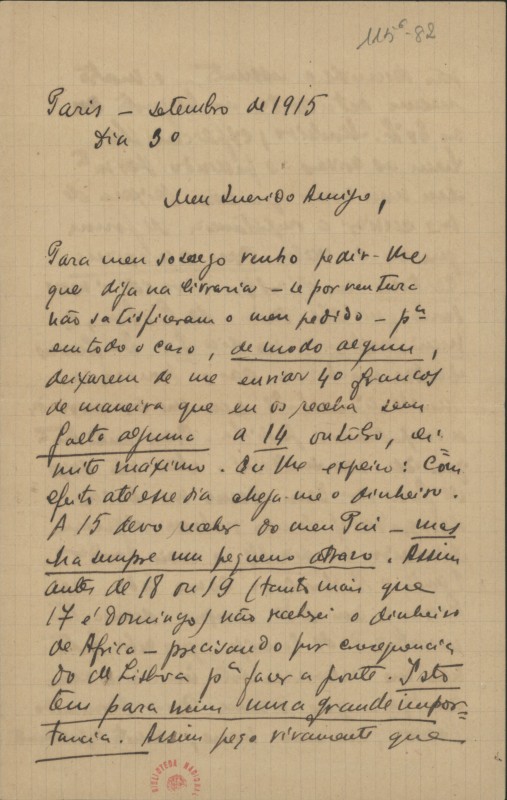 115⁶-82
Paris – setembro de 1915
Dia 30
Meu Querido Amigo,
Para meu socego venho pedir-lhe
que diga na livraria – se por ventura
não satisfizeram o meu pedido – pª
em todo o caso, de modo algum,
deixarem de me enviar 40 francos
de maneira que eu os receba sem
falta alguma a 14 outubro, li-
mite máximo. Eu lhe expico: Com
efeito até esse dia chega-me o dinheiro.
A 15 devo receber do meu Pai – mas
ha sempre um pequeno atrazo. Assim
antes de 18 ou 19 (tanto mais que
17 é domingo) não receberei o dinheiro
de Africa – precisando por consequencia
do de Lisboa pª fazer a ponte. Isto
tem para mim uma grande impor-
tancia. Assim peço vivamente que
BIBLIOTECA NACIONAL